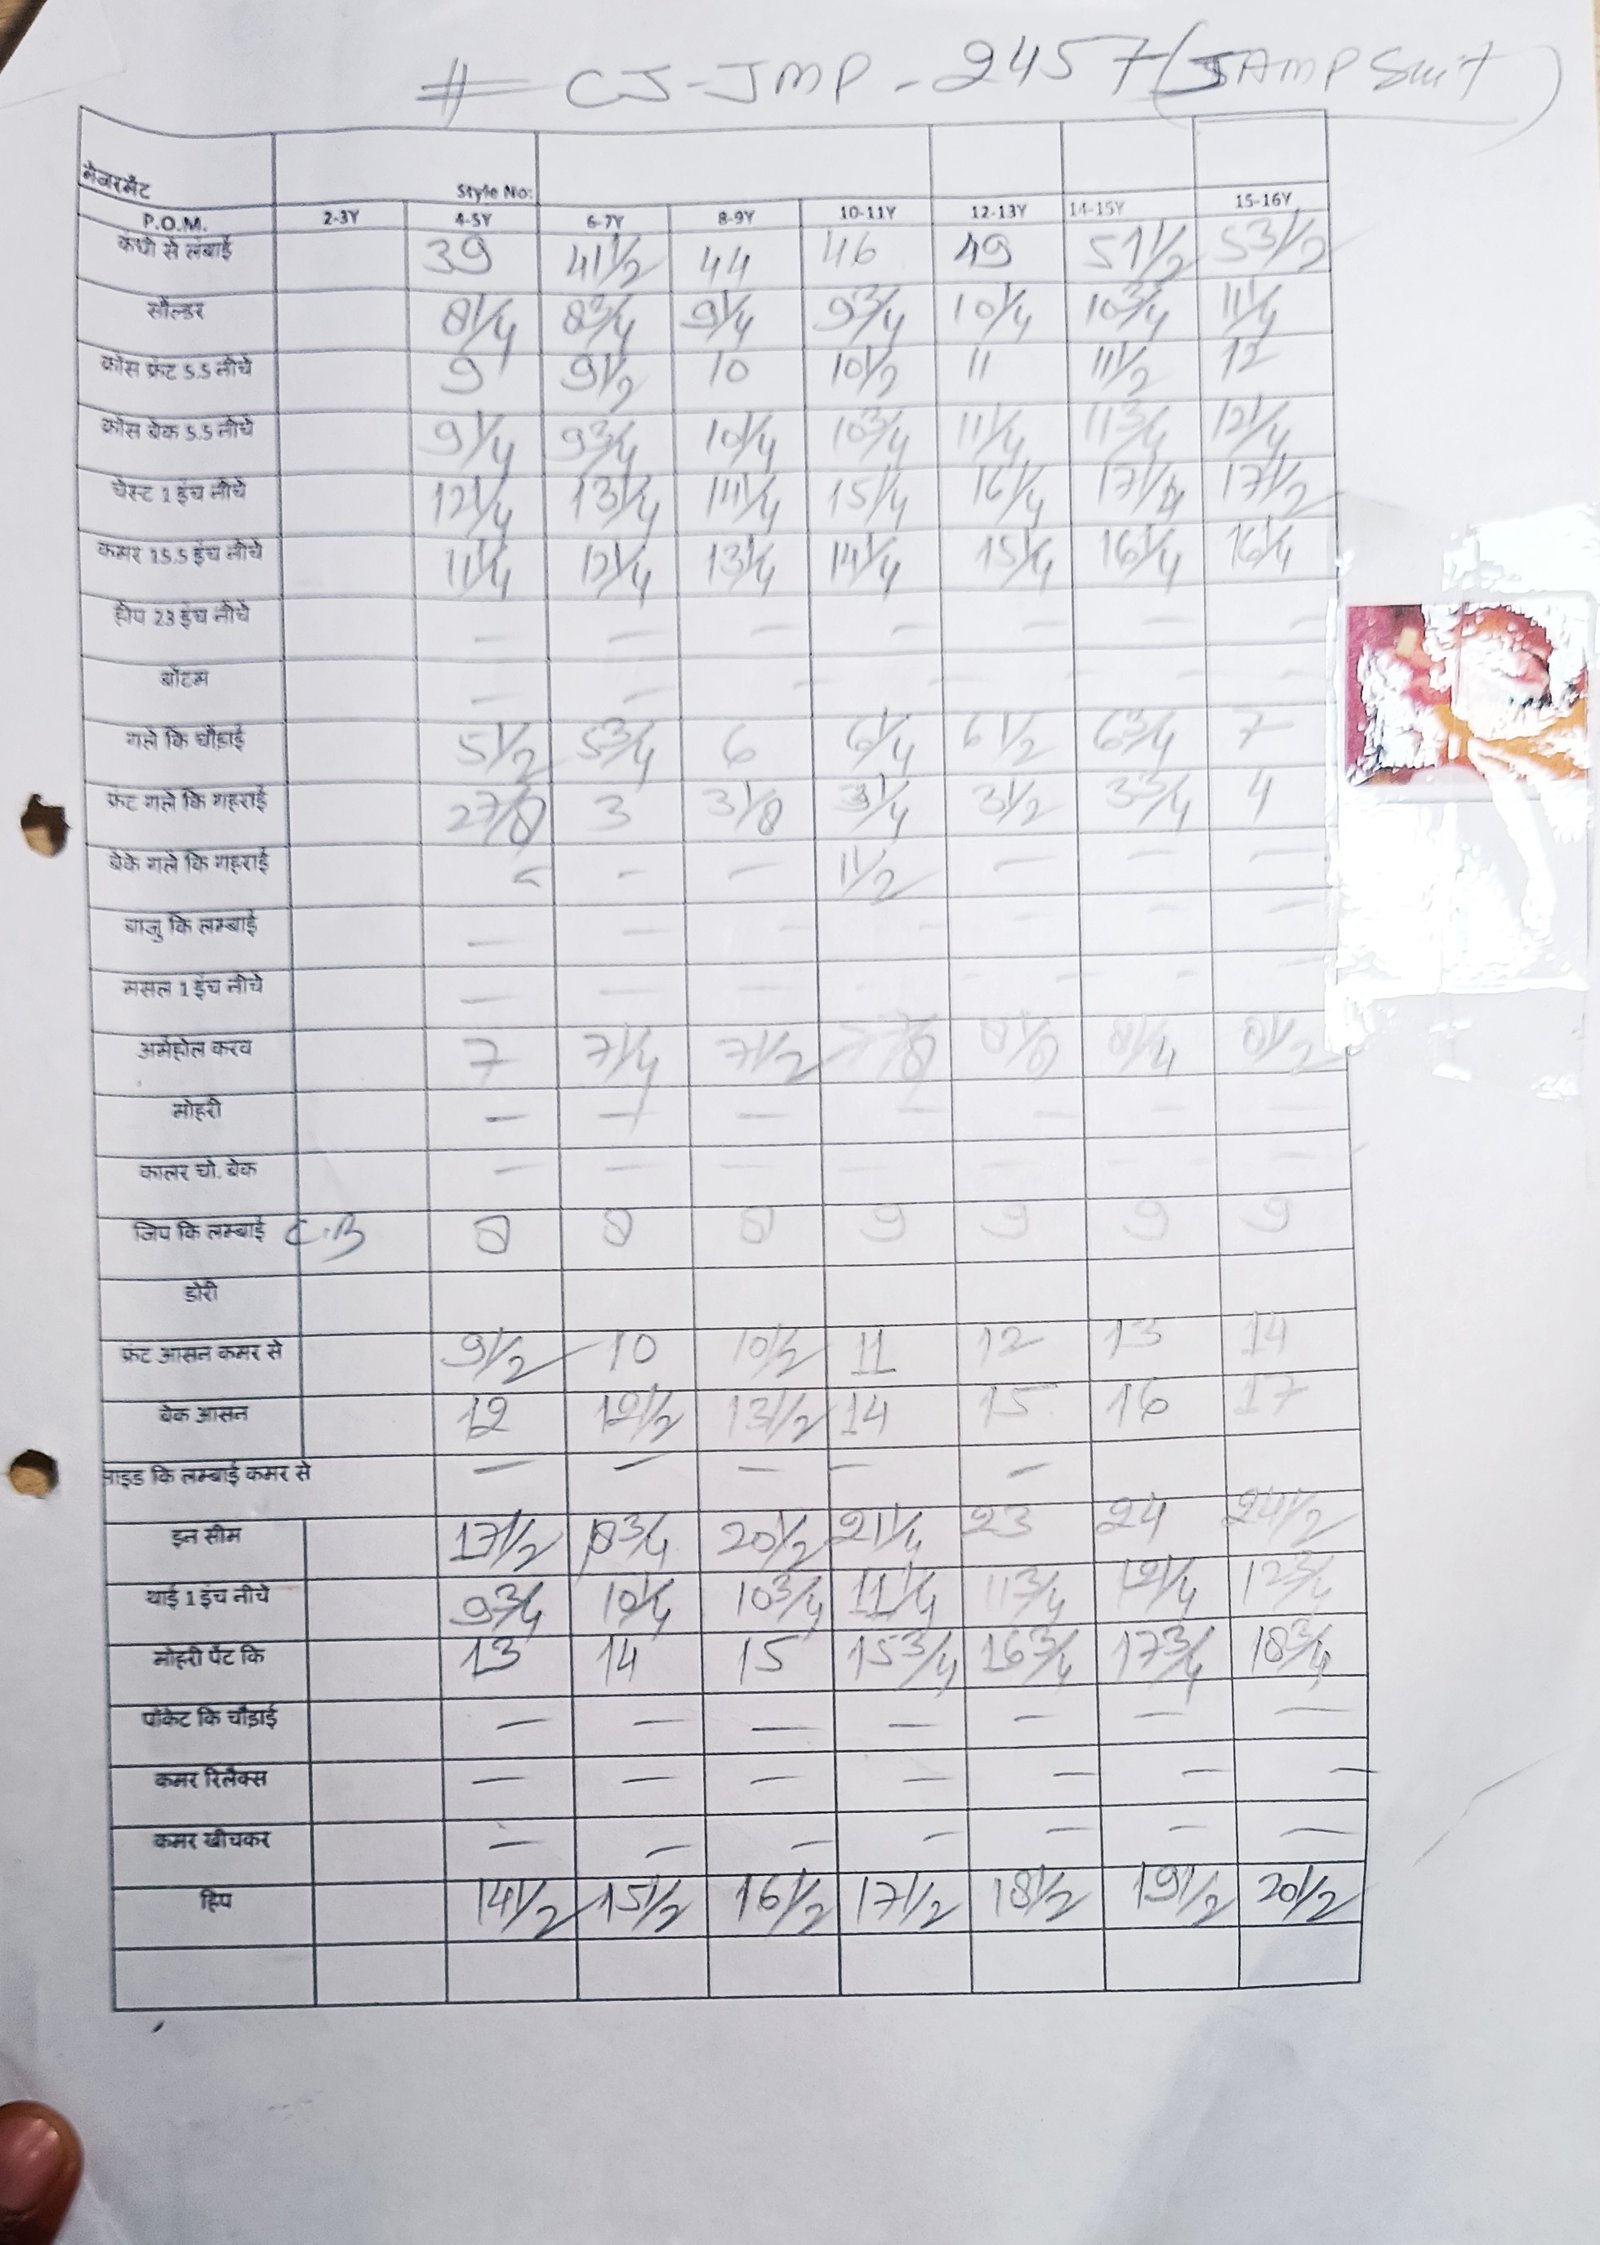 # CJ-JMP-2457 (JAMPSuit)
मेजरमेंट Style No:
P.O.M. 2-3Y 4-5Y 6-7Y 8-9Y 10-11Y 12-13Y 14-15Y 15-16Y
कंधो से लंबाई 39 41 1/2 44 46 49 51 1/2 53 1/2
सोल्डर 8 1/4 8 3/4 9 1/4 9 3/4 10 1/4 10 3/4 11 1/4
क्रोस फ्रंट 5.5 नीचे 9 9 1/2 10 10 1/2 11 11 1/2 12
क्रोस बेक 5.5 नीचे 9 1/4 9 3/4 10 1/4 10 3/4 11 1/4 11 3/4 12 1/4
चेस्ट 1 इंच नीचे 12 1/4 13 1/4 14 1/4 15 1/4 16 1/4 17 1/4 17 1/2
कमर 15.5 इंच नीचे 11 1/4 12 1/4 13 1/4 14 1/4 15 1/4 16 1/4 16 1/4
हीप 23 इंच नीचे - - - - - - -
बॉटम - - - - - - -
गले कि चौड़ाई 5 1/2 5 3/4 6 6 1/4 6 1/2 6 3/4 7
फ्रंट गले कि गहराई 2 7/8 3 3 1/8 3 1/4 3 1/2 3 3/4 4
बेके गले कि गहराई - - - 1 1/2 - - -
बाजु कि लम्बाई - - - - - - -
मसल 1 इंच नीचे - - - - - - -
अर्महोल करव 7 7 1/4 7 1/2 7/8 8 1/8 8 1/4 8 1/2
मोहरी - - - - - - -
कालर चो. बेक - - - - - - -
जिप कि लम्बाई C.B 8 8 8 9 9 9 9
डोरी
फ्रंट आसन कमर से 9 1/2 10 10 1/2 11 12 13 14
बेक आसन 12 12 1/2 13 1/2 14 15 16 17
साइड कि लम्बाई कमर से - - - - -
इन सीम 17 1/2 18 3/4 20 1/2 21 1/4 23 24 24 1/2
थाई 1 इंच नीचे 9 3/4 10 1/4 10 3/4 11 1/4 11 3/4 12 1/4 12 3/4
मोहरी पेंट कि 13 14 15 15 3/4 16 3/4 17 3/4 18 3/4
पॉकेट कि चौड़ाई - - - - - - -
कमर रिलैक्स - - - - - - -
कमर खीचकर - - - - - - -
हिप 14 1/2 15 1/2 16 1/2 17 1/2 18 1/2 19 1/2 20 1/2